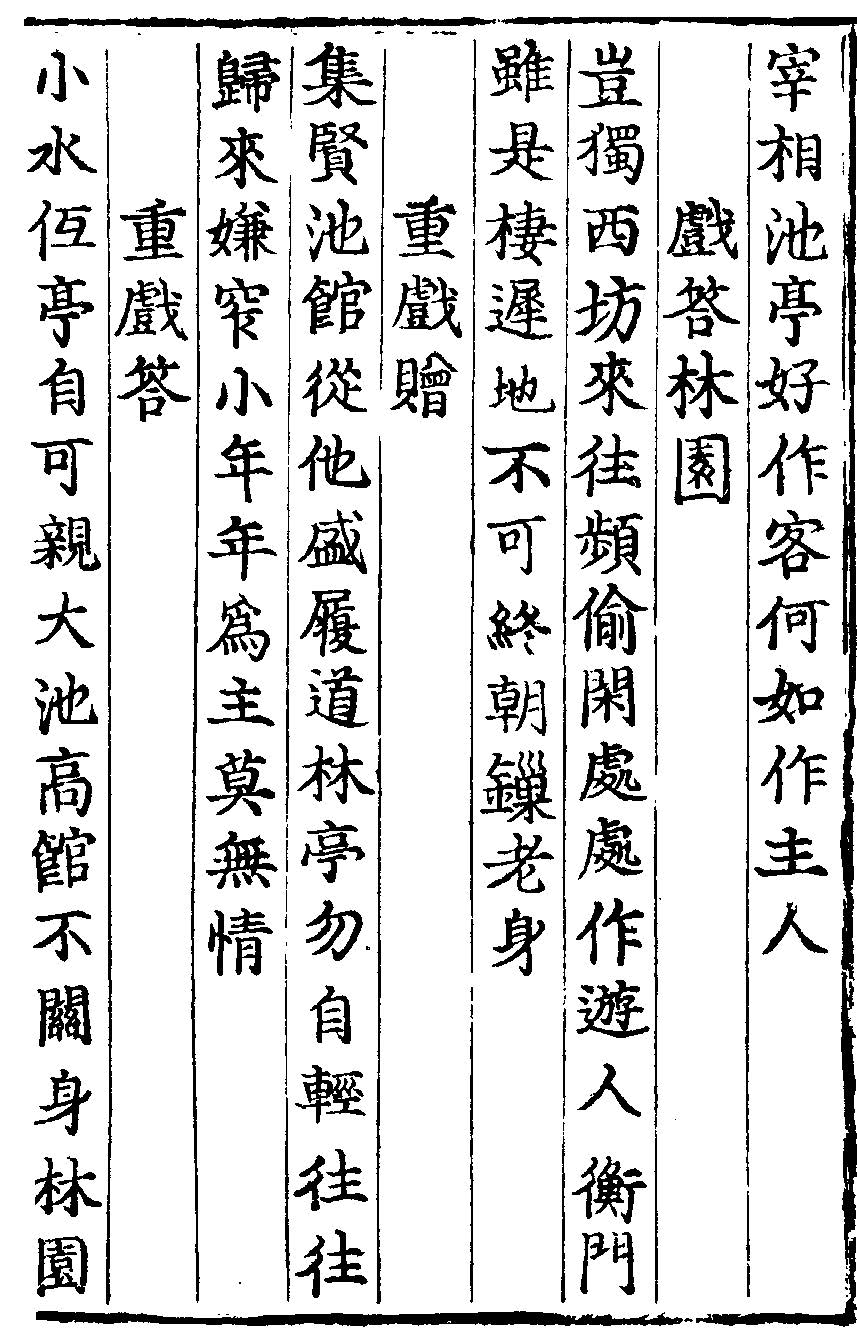 宰相池亭好作客何如作主人
戲答林園
豈獨西坊來往頻偷閑處處作遊人衡門
雖是棲遲地不可終朝鏁老身
重戲贈
集賢池館從他盛履道林亭勿自輕往往
歸來嫌窄小年年爲主莫無情
重戲答
小水仾亭自可親大池高館不關身林園